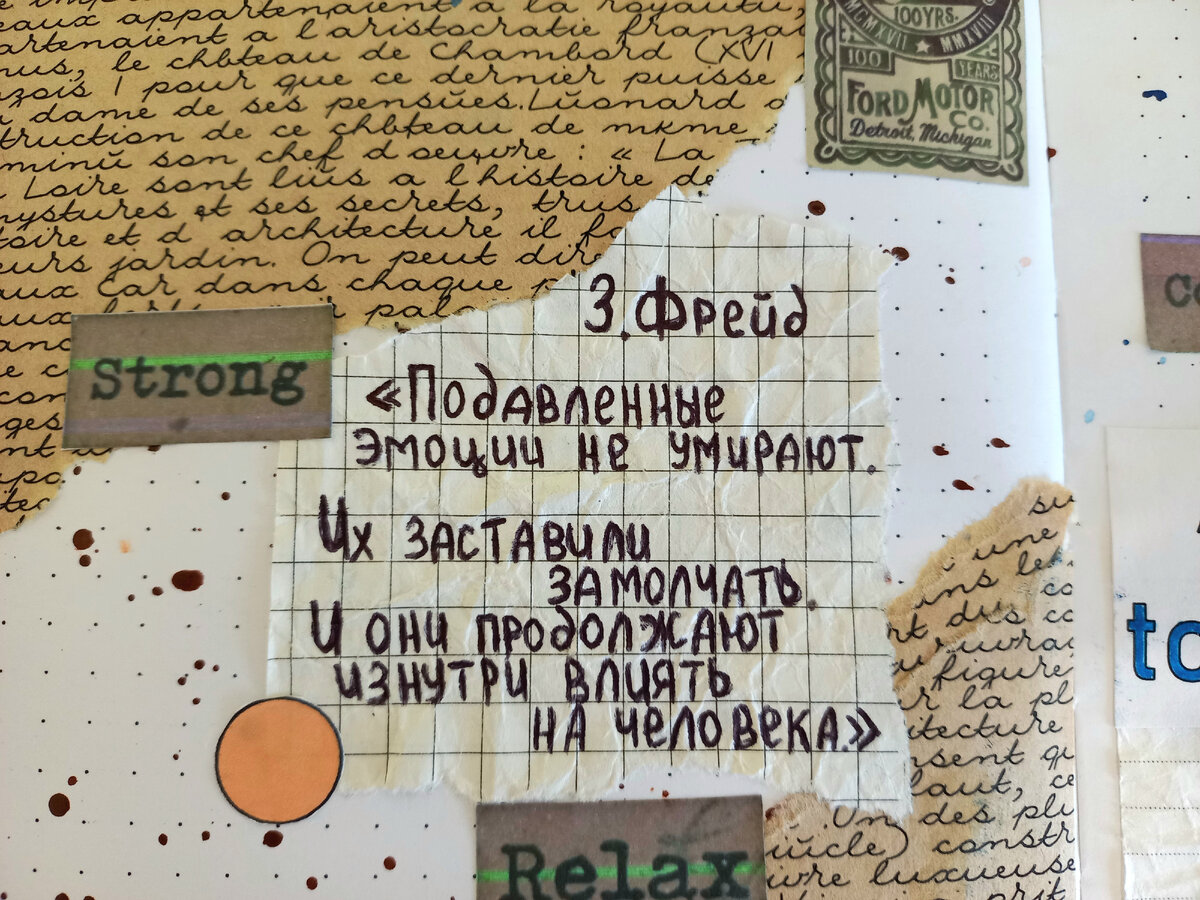 eaux appartenaient a la royautu,
artenaient a l'aristocratie frança
nus, le chbteau de Chambord (XVI
zois 1 pour que ce dernier puisse
dame de ses pensŭes. Lŭonard
truction de ce chbteau de mkme
minŭ son chef d oeuvre : « La
Loire sont liŭs a l histoire de
mystures et ses secrets, trus
toire et d architecture il fo
eurs jardin. On peut dire
aux Car dans chaque p
100YRS.
MCMXVII ★ MMXVIII
100 YEARS
FORD MOTOR
Co.
Detroit, Michigan
Strong
З. Фрейд
«Подавленные
эмоции не умирают.
Их заставили
замолчать.
И они продолжают
изнутри влиять
на человека.»
Relax
Co
to
su
une
ans les
rt dus co
figure
r la pl
itecture
sent qu
laut, ce
Un des plu
iŭcle) constr
uvre luxueuse
prit